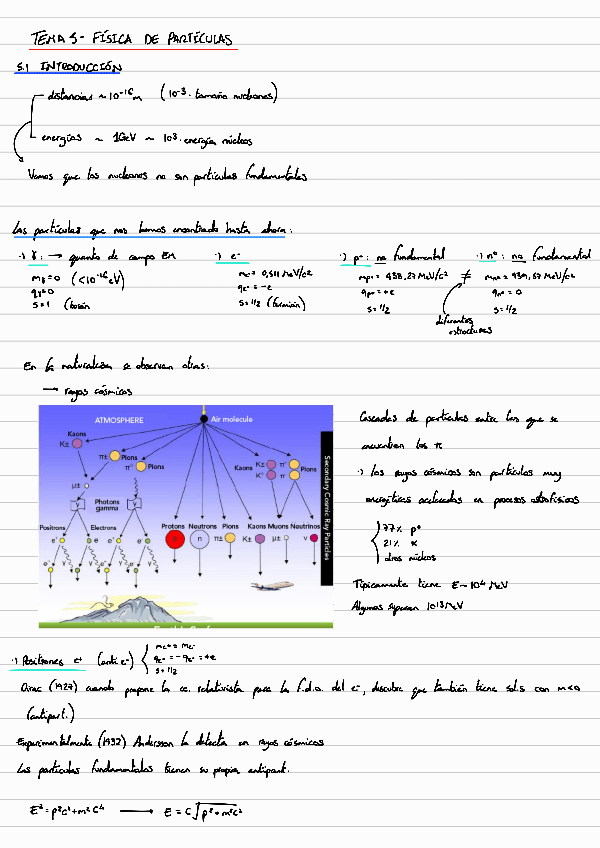 TEMA 5 - FÍSICA DE PARTÍCULAS
5.1 INTRODUCCIÓN
distancias ~ 10^-16 m (10^-3 · tamaño nucleones)
energías ~ 1GeV ~ 10^3 · energía núcleos
Vemos que los nucleones no son partículas fundamentales
Las partículas que nos hemos encontrado hasta ahora:
·) γ: → quanto de campo EM
mγ = 0 (<10^-16 eV)
qγ = 0
s = 1 (bosón
·) e-
me = 0,511 MeV/c²
qe- = -e
s = 1/2 (fermión)
·) p+: no fundamental
mp+ = 938,27 MeV/c² ≠
qp+ = +e
s = 1/2
·) n°: no fundamental
mn° = 939,57 MeV/c²
qn° = 0
s = 1/2
diferentes
estructuras
En la naturaleza se observan otras:
→ rayos cósmicos
ATMOSPHERE
Air molecule
Kaons
K±
π± Pions
π° Pions
μ±
Photons
gamma
γ γ
Positrons Electrons
e+ e- e+ e-
Kaons K± π± Pions
K° π°
Protons Neutrons Pions Kaons Muons Neutrinos
p n π± K± μ± ν
Secondary Cosmic Ray Particles
Cascadas de partículas entre las que se
encuentran los π
·) Los rayos cósmicos son partículas muy
energéticas aceleradas en procesos astrofísicos
77% p+
21% α
otros núcleos
Típicamente tiene E ~ 10^4 MeV
Algunos superan 10^13 MeV
·) Positrones e+ (anti e-)
me+ = me-
qe+ = -qe- = +e
s = 1/2
Dirac (1927) cuando propone la ec. relativista para la f.d.o. del e-, descubre que también tiene sols con m<0
(antipart.)
Experimentalmente (1932) Andersson la detecta en rayos cósmicos
Las partículas fundamentales tienen su propia antipart.
E² = p²c² + m²c⁴ → E = c√p² + m²c²